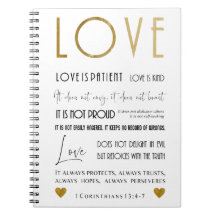 LOVE
LOVE IS PATIENT LOVE IS KIND
It does not envy, it does not boast,
IT IS NOT PROUD
it does not dishonor others
it is not self-seeking
IT IS NOT EASILY ANGERED, IT KEEPS NO RECORD OF WRONGS.
Love
DOES NOT DELIGHT IN EVIL
BUT REJOICES WITH THE TRUTH
IT ALWAYS PROTECTS, ALWAYS TRUSTS,
ALWAYS HOPES, ALWAYS PERSEVERES
1 CORINTHIANS 13:4-7